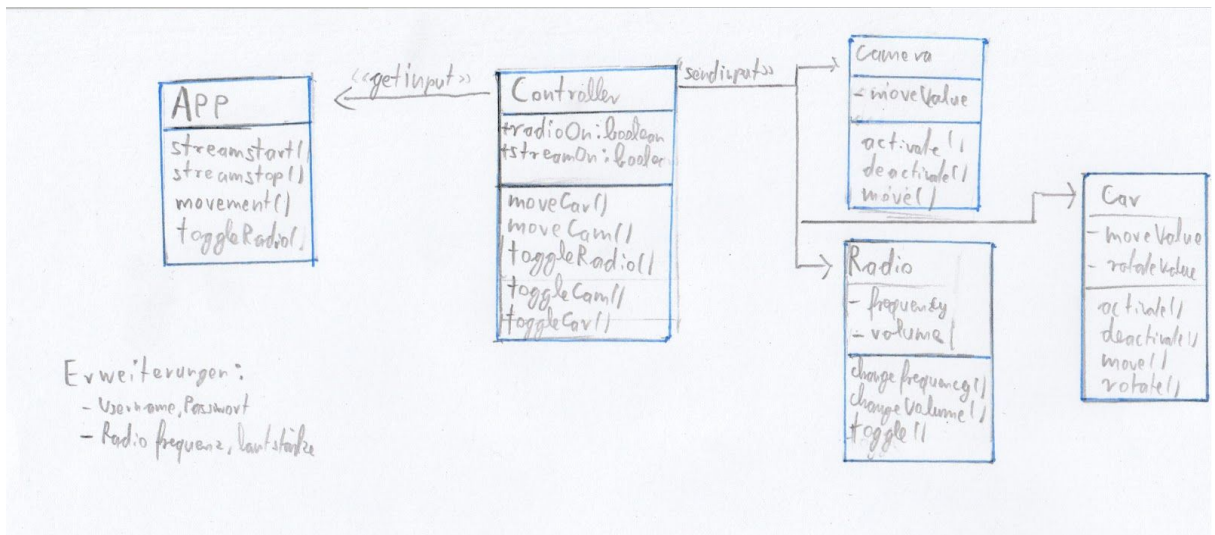 APP
streamstart()
streamstop()
movement()
toggleRadio()
<<getinput>>
Controller
+radioOn:boolean
+streamOn:boolean
moveCar()
moveCam()
toggleRadio()
toggleCam()
toggleCar()
<<sendinput>>
Camera
- moveValue
activate()
deactivate()
move()
Radio
- frequency
- volume
changefrequency()
changeVolume()
toggle()
Car
- moveValue
- rotateValue
activate()
deactivate()
move()
rotate()
Erweiterungen:
- Username, Passwort
- Radiofrequenz, Lautstärke